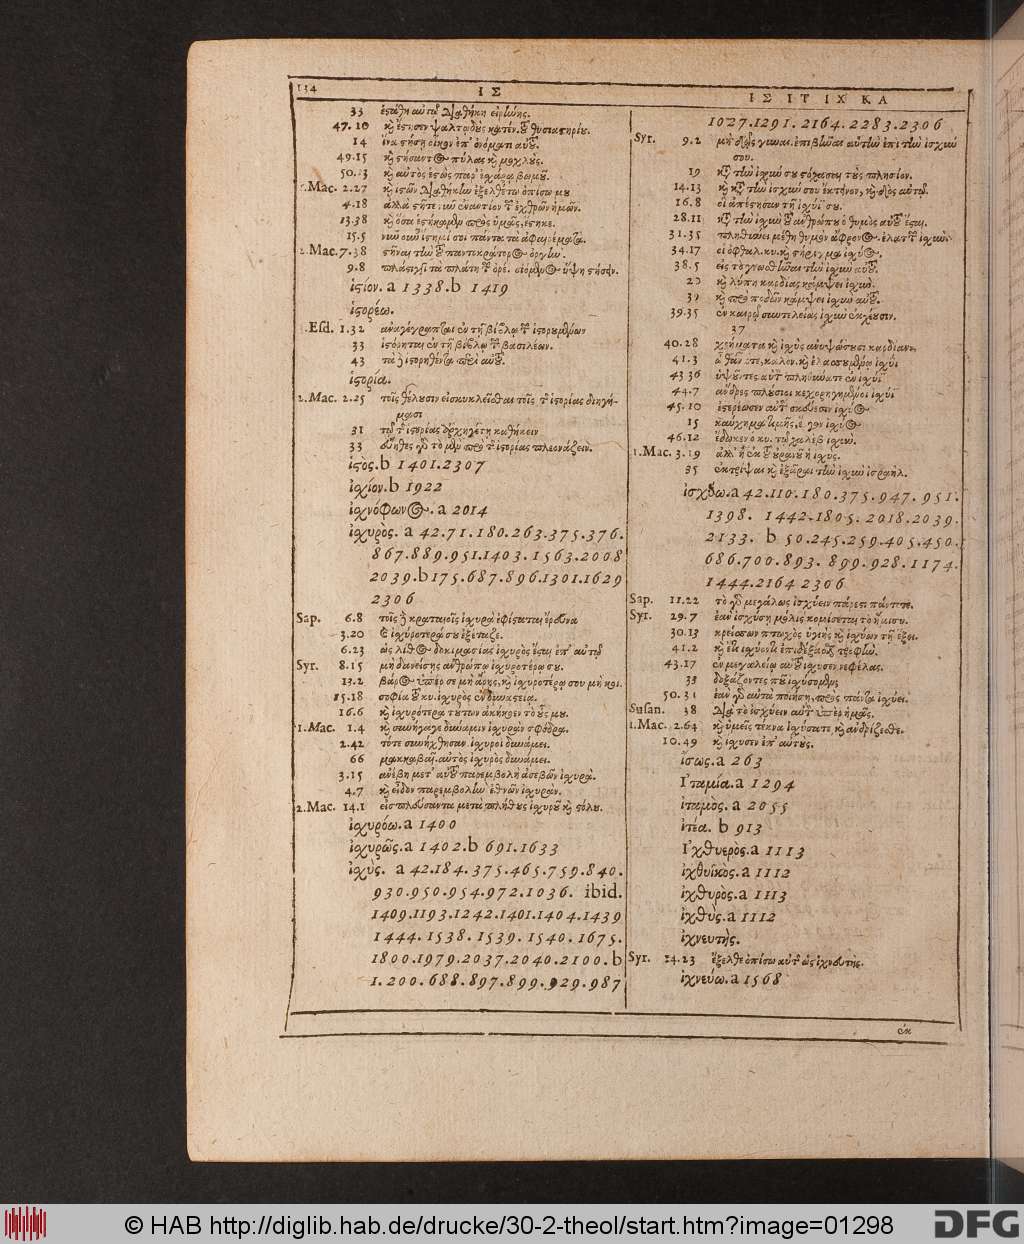 134
Ι Σ
33 ἐστάθη αὐτῷ διαθήκη εἰρήνης.
47.10 κỳ ἔστησεν ψαλτῳδοὺς κατέν. τοῦ θυσιαστηρίου.
14 ἵνα στήσῃ οἶκον ἐπ' ὀνόματι αὐτοῦ.
49.15 κỳ στήσαντος πύλας κỳ μοχλοὺς.
50.13 κỳ αὐτὸς ἑστὼς παρ' ἐσχάρᾳ βωμοῦ.
Mac. 2.27 κỳ ἱστῶν διαθήκην ἐξελθέτω ὀπίσω μου
4.18
13.38 κỳ ὅσα ἐστήκαμεν πρὸς ὑμᾶς, ἕστηκε.
15.5 νῦν οὖν ἵστημί σοι πάντα τὰ ἀφαιρέματα.
2.Mac.7.38 στῆναι τὴν τοῦ παντοκράτορος ὀργὴν.
9.8
ἱστίον. a 1338. b 1419
ἱστορέω.
.Esd. 1.32 ἀναγέγραπται ἐν τῇ βίβλῳ τῶν ἱστορουμένων
33 ἱστόρηται ἐν τῇ βίβλῳ τῶν βασιλέων.
43 τὰ δὲ ἱστορηθέντα περὶ αὐτοῦ.
ἱστορία.
2.Mac. 2.25 τοῖς θέλουσιν εἰσκυκλεῖσθαι τοῖς τῆς ἱστορίας διηγή-
μασι
31 τῷ τῆς ἱστορίας ἀρχηγέτῃ καθήκειν
33 εὔηθες γὰρ τὸ μὲν πρὸ τῆς ἱστορίας πλεονάζειν.
ἱστὸς. b 1401. 2307
ἰσχίον. b 1922
ἰσχνόφωνος. a 2014
ἰσχυρὸς. a 42. 71. 180. 263. 375. 376.
867. 889. 951. 1403. 1563. 2008
2039. b 175. 687. 896. 1301. 1629
2306
Sap. 6.8 τοῖς δὲ κραταιοῖς ἰσχυρὰ ἐφίσταται ἔρευνα
3.20 ἰσχυρότερά σου ἐξέταζε.
6.23 ὡς λίθος δοκιμασίας ἰσχυρὸς ἔσται ἐπ' αὐτῷ
Syr. 8.15 μὴ δανείσῃς ἀνθρώπῳ ἰσχυροτέρῳ σου.
13.2 βάρος ὑπὲρ σε μὴ ἄρῃς, κỳ ἰσχυροτέρῳ σου μὴ κοι.
15.18 σοφία τοῦ κυ. ἰσχυρὸς ἐν δυναστείᾳ.
16.6 κỳ ἰσχυρότερα τούτων ἀκήκοεν τὸ οὖς μου.
1.Mac. 1.4 κỳ συνήγαγε δύναμιν ἰσχυρὰν σφόδρα.
2.42 τότε συνήχθησαν ἰσχυροὶ δυνάμει.
66 μακκαβαῖ. αὐτὸς ἰσχυρὸς δυνάμει.
3.15 ἀνέβη μετ' αὐτοῦ παρεμβολὴ ἀσεβῶν ἰσχυρά.
4.7 κỳ εἶδον παρεμβολὴν ἐθνῶν ἰσχυρὰν.
2.Mac. 14.1 εἰσπλεύσαντα μετὰ πλήθους ἰσχυροῦ κỳ στόλου.
ἰσχυρόω. a 1400
ἰσχυρῶς. a 1402. b 691. 1633
ἰσχὺς. a 42. 184. 375. 465. 759. 840.
930. 950. 954. 972. 1036. ibid.
1409. 1193. 1242. 1401. 1404. 1439
1444. 1538. 1539. 1540. 1675.
1800. 1979. 2037. 2040. 2100. b
1. 200. 688. 897. 899. 929. 987
Ι Σ Ι Τ Ι Χ Κ Α
1027. 1291. 2164. 2283. 2306
Syr. 9.2 μὴ δῷς γυναι. ἐπιβῆναι αὐτὴν ἐπὶ τὴν ἰσχύν
σου.
19
14.13 κỳ κατὰ τὴν ἰσχύν σου ἔκτεινον, κỳ δὸς αὐτῷ.
16.8 οἳ ἀπέστησαν τῇ ἰσχύϊ σου.
28.11 κατὰ τὴν ἰσχὺν τοῦ ἀνθρώπου ὁ θυμὸς αὐτοῦ ἔσται.
31.35 πληθύνει μέθη θυμὸν ἄφρονος. ἐλαττ. ἰσχὺν.
34.17 οἱ ὀφθαλ. κυ. κỳ στήριγμα ἰσχύος.
38.5 εἰς τὸ γνωσθῆναι τὴν ἰσχὺν αὐτοῦ.
20 κỳ λύπη καρδίας κάμψει ἰσχύν.
39.35 ἐν καιρῷ συντελείας ἰσχὺν ἐκχέουσιν.
37
40.28 χρήματα κỳ ἰσχὺς ἀνυψώσουσι καρδίαν,
41.3
43.36 ὑψοῦντες αὐτὸν πληθύνατε ἐν ἰσχύϊ
44.7 ἄνδρες πλούσιοι κεχορηγημένοι ἰσχύϊ
45.10 ἐστερέωσεν αὐτὸν σκεύεσιν ἰσχύος
15
46.12 ἔδωκεν ὁ κυ. τῷ χαλὲβ ἰσχύν.
1.Mac. 3.19 ἀλλ' ἢ ἐκ τοῦ οὐρανοῦ ἡ ἰσχὺς.
35 ἐκτρίψαι κỳ ἐξᾶραι τὴν ἰσχὺν ἰσραὴλ.
ἰσχύω. a 42. 110. 180. 375. 947. 951.
1398. 1442. 1805. 2018. 2039.
2133. b 50. 245. 259. 405. 450.
686. 700. 893. 899. 928. 1174.
1444. 2164 2306
Sap. 11.22 τὸ γὰρ μεγάλως ἰσχύειν πάρεστι πάντοτε.
Syr. 29.7 ἐὰν ἰσχύσῃ μόλις κομίσεται τὸ ἥμισυ.
30.13 κρείσσων πτωχὸς ὑγιὴς κỳ ἰσχύων τῇ ἕξει.
41.2
43.17 ἐν μεγαλείῳ αὐτοῦ ἴσχυσεν νεφέλας.
33
50.31 ἐὰν γὰρ αὐτὰ ποιήσῃ, πρὸς πάντα ἰσχύσει.
Susan. 38 διὰ τὸ ἰσχύειν αὐτὸν ὑπὲρ ἡμᾶς.
1.Mac. 2.64 κỳ ὑμεῖς τέκνα ἰσχύσατε κỳ ἀνδρίζεσθε.
10.49 κỳ ἴσχυσεν ἐπ' αὐτούς.
ἴσως. a 263
Ἰταμία. a 1294
ἰταμὸς. a 2055
ἰτέα. b 913
Ἰχθυερὸς. a 1113
ἰχθυϊκὸς. a 1112
ἰχθυρὸς. a 1113
ἰχθὺς. a 1112
ἰχνευτὴς.
Syr. 14.23 ἔξελθε ὀπίσω αὐτῆς ὡς ἰχνευτὴς.
ἰχνεύω. a 1568
© HAB http://diglib.hab.de/drucke/30-2-theol/start.htm?image=01298
DFG